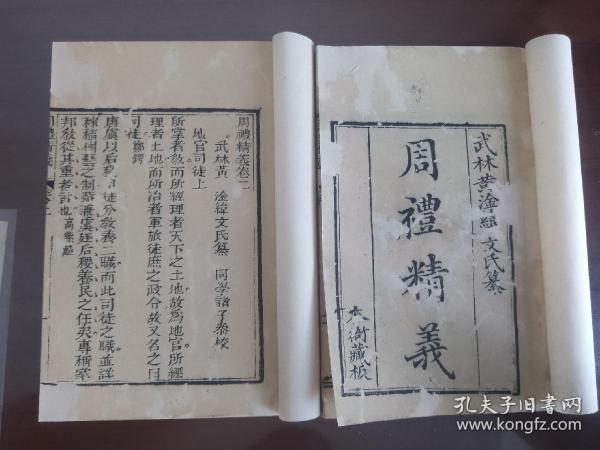 武林黃淦緯文氏纂
周禮精義
本衙藏板
周禮精義卷二
武林黃 淦緯文氏纂 同學諸子叅校
地官司徒上
所掌者敎而所經理者天下之土地故爲地官所經
理者土地而所治者軍旅徒庶之政令故又名之曰
司徒鄭鍔
唐虞以后稷司徒分敎養二職而此司徒之職並詳
稼穡樹藝之制葢兼虞廷后稷養民之任矣專稱掌
邦敎從其重者言也高紫超
孔夫子旧书网
kongfz.com